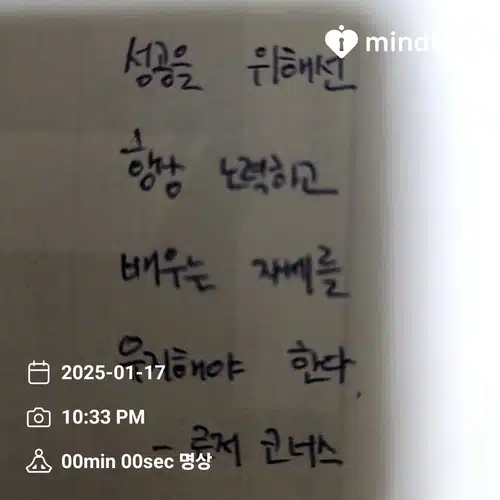 성공을 위해선
mind
항상 노력하고
배우는 자세를
유지해야 한다.
2025-01-17
10:33 PM
- 로저 코너스
00min 00sec 명상